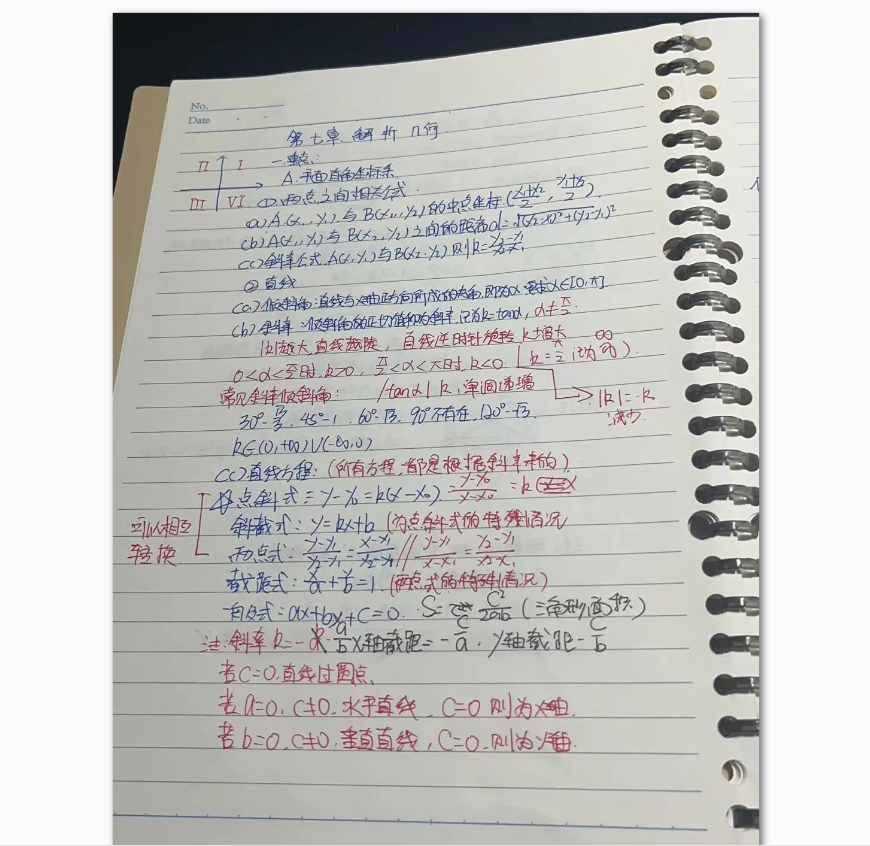 No.
Date
第七章 解析几何
II I 一.重点:
III VI A.平面直角坐标系
①.两点之间相关公式.
(a) A(x₁, y₁) 与 B(x₂, y₂) 的中点坐标 (x₁+x₂/2, y₁+y₂/2)
(b) A(x₁, y₁) 与 B(x₂, y₂) 之间的距离 d=√(x₂-x₁)²+(y₂-y₁)²
(c) 斜率公式. A(x₁, y₁) 与 B(x₂, y₂) 则 k=y₂-y₁/x₂-x₁
② 直线
(a) 倾斜角:直线与x轴正方向所成的夹角,即为α 要求α∈[0, π]
(b) 斜率:倾斜角的正切值即为斜率,记为k=tanα, α≠π/2
|k|越大直线越陡, 直线逆时针旋转 k增大 ∞
0<α<π/2时, k>0, π/2<α<π时, k<0. (k=π/2 ).
常见斜率倾斜角: |tanα| k, 单调递增 → |k|=-k
减少.
30°-√3/3. 45°-1, 60°-√3. 90°不存在, 120°-√3.
k∈(0, +∞)∪(-∞, 0)
(c) 直线方程: (所有方程, 都是根据斜率来的)
点斜式: y-y₀=k(x-x₀) y-y₀/x-x₀ = k
可以相互转换
斜截式: y=kx+b (为点斜式的特殊情况
两点式: y-y₁/y₂-y₁=x-x₁/x₂-x₁ // y-y₁/x-x₁=y₂-y₁/x₂-x₁
截距式: x/a+y/b=1. (两点式的特殊情况)
一般式: ax+by+c=0. S= c²/2ab (三角形面积)
注: 斜率k=-a/b x轴截距=-c/a. y轴截距-c/b
若c=0. 直线过圆点.
若a=0, c≠0. 水平直线, c=0 则为x轴.
若b=0. c≠0. 垂直直线, c=0. 则为y轴.